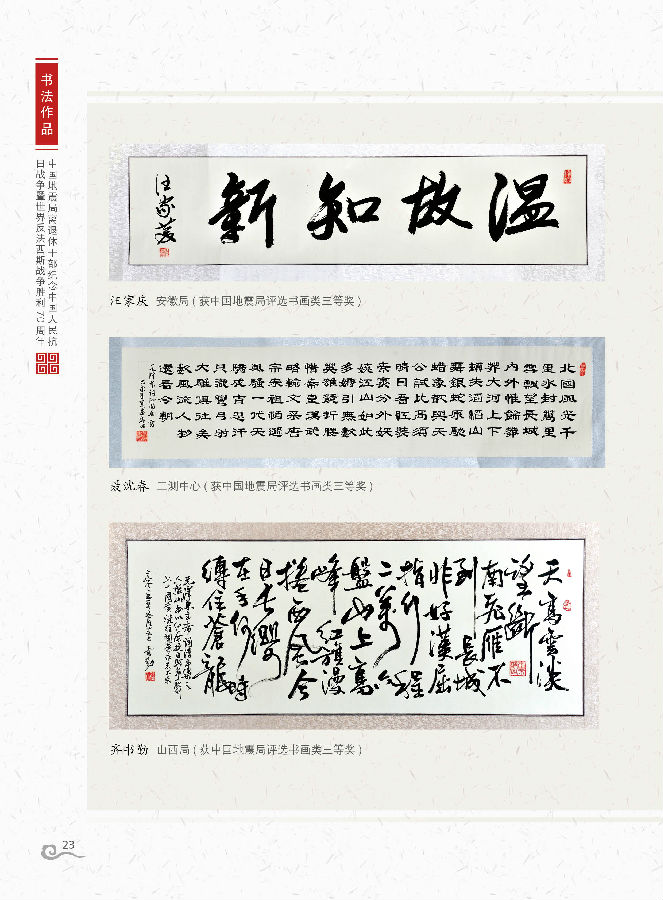 书法作品
中国地震局离退休干部纪念中国人民抗
日战争暨世界反法西斯战争胜利70周年
温故知新
汪家庆
汪家庆 安徽局(获中国地震局评选书画类三等奖)
北国风光千
里冰封万里
雪飘望长城
内外惟余莽
莽大河上下
顿失滔滔山
舞银蛇原驰
蜡象欲与天
公试比高须
晴日看红装
素裹分外妖
娆江山如此
多娇引无数
英雄竞折腰
惜秦皇汉武
略输文采唐
宗宋祖稍逊
风骚一代天
骄成吉思汗
只识弯弓射
大雕俱往矣
数风流人物
还看今朝
聂沈春 二测中心(获中国地震局评选书画类三等奖)
天高云淡
望断
南飞雁不
到长城
非好汉屈
指行程
二万六
盘山上高
峰红旗漫
卷西风今
日长缨
在手何时
缚住苍龙
齐书勤 山西局(获中国地震局评选书画类三等奖)
23